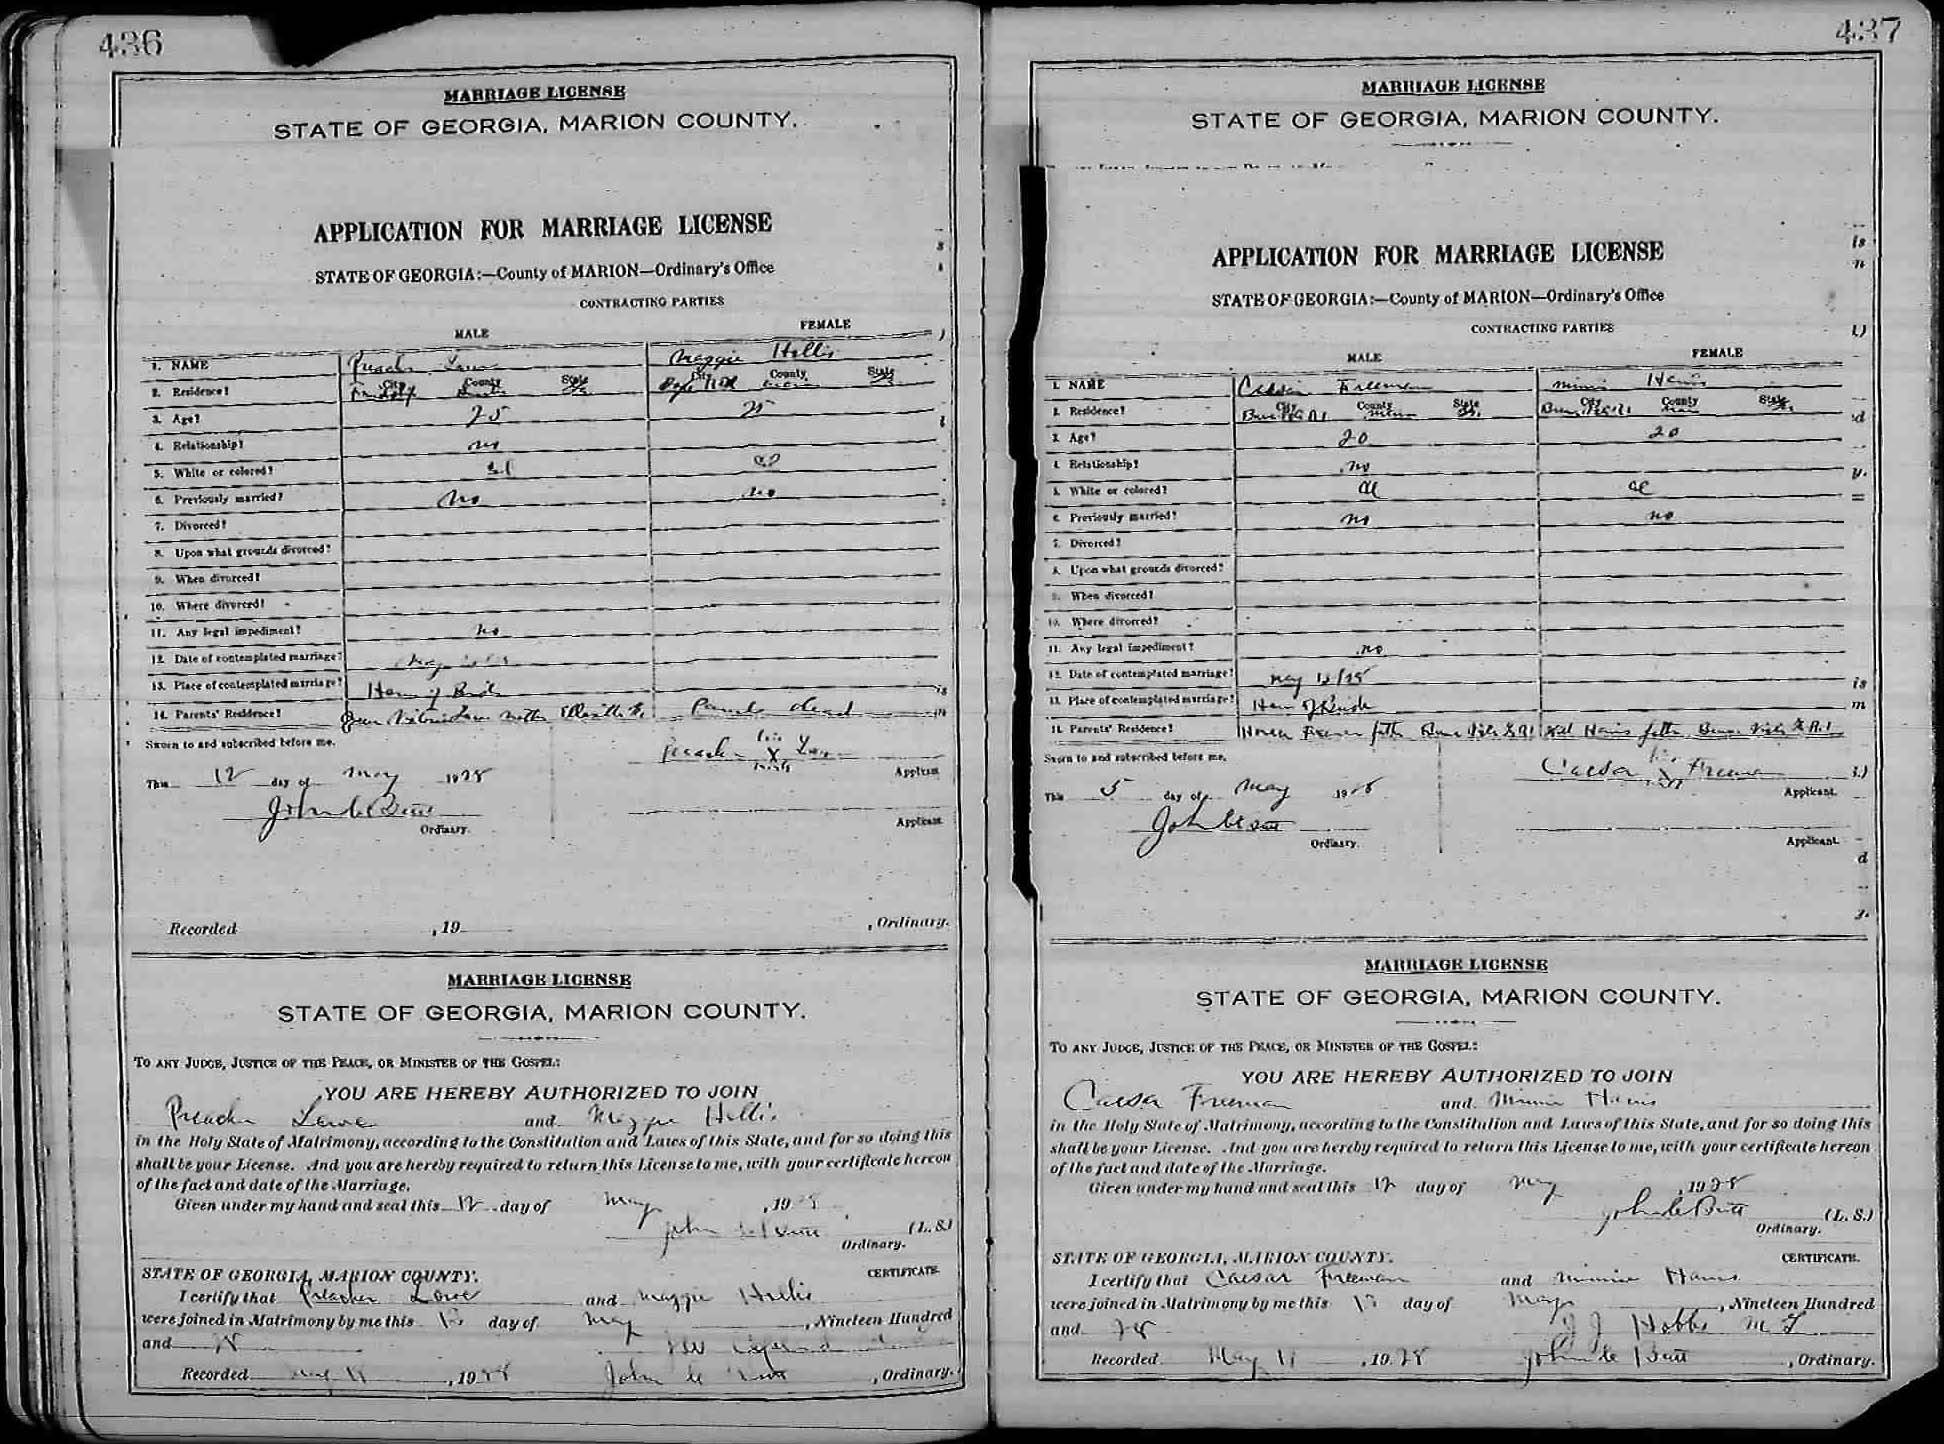 436
MARRIAGE LICENSE
STATE OF GEORGIA, MARION COUNTY.
APPLICATION FOR MARRIAGE LICENSE
STATE OF GEORGIA:—County of MARION—Ordinary's Office
CONTRACTING PARTIES
MALE FEMALE
1. NAME Preacher Lowe Maggie Hollis
2. Residence? City County State City County State
3. Age? 25 25
4. Relationship? no
5. White or colored? Col Col
6. Previously married? No no
7. Divorced?
8. Upon what grounds divorced?
9. When divorced?
10. Where divorced?
11. Any legal impediment? no
12. Date of contemplated marriage? May
13. Place of contemplated marriage? Home of Bride
14. Parents' Residence? mother Ellaville Parents dead
Sworn to and subscribed before me. his
Preacher X Lowe
mark
This 12 day of May 1928 Applicant
Ordinary. Applicant
Recorded , 19 , Ordinary.
MARRIAGE LICENSE
STATE OF GEORGIA, MARION COUNTY.
TO ANY JUDGE, JUSTICE OF THE PEACE, OR MINISTER OF THE GOSPEL:
YOU ARE HEREBY AUTHORIZED TO JOIN
Preacher Lowe and Maggie Hollis
in the Holy State of Matrimony, according to the Constitution and Laws of this State, and for so doing this
shall be your License. And you are hereby required to return this License to me, with your certificate hereon
of the fact and date of the Marriage.
Given under my hand and seal this 12 day of May , 1928
(L. S.)
Ordinary.
STATE OF GEORGIA, MARION COUNTY. CERTIFICATE
I certify that Preacher Lowe and Maggie Hollis
were joined in Matrimony by me this day of May , Nineteen Hundred
and 28
Recorded May , 1928 John C Butt , Ordinary.
437
MARRIAGE LICENSE
STATE OF GEORGIA, MARION COUNTY.
APPLICATION FOR MARRIAGE LICENSE
STATE OF GEORGIA:—County of MARION—Ordinary's Office
CONTRACTING PARTIES
MALE FEMALE
1. NAME Caesar Freeman Minnie Harris
2. Residence? City County State City County State
3. Age? 20 20
4. Relationship? no
5. White or colored? Col Col
6. Previously married? no no
7. Divorced?
8. Upon what grounds divorced?
9. When divorced?
10. Where divorced?
11. Any legal impediment? no
12. Date of contemplated marriage? May 12/28
13. Place of contemplated marriage? Home of Bride
14. Parents' Residence? Freeman father Buena Vista Ga R1 Harris father Buena Vista Ga R.1
Sworn to and subscribed before me. his
Caesar X Freeman
This 5 day of May 1928 Applicant.
Ordinary. Applicant.
MARRIAGE LICENSE
STATE OF GEORGIA, MARION COUNTY.
TO ANY JUDGE, JUSTICE OF THE PEACE, OR MINISTER OF THE GOSPEL:
YOU ARE HEREBY AUTHORIZED TO JOIN
Caesar Freeman and Minnie Harris
in the Holy State of Matrimony, according to the Constitution and Laws of this State, and for so doing this
shall be your License. And you are hereby required to return this License to me, with your certificate hereon
of the fact and date of the Marriage.
Given under my hand and seal this 12 day of May , 1928
John C Butt (L. S.)
Ordinary.
STATE OF GEORGIA, MARION COUNTY. CERTIFICATE.
I certify that Caesar Freeman and Minnie Harris
were joined in Matrimony by me this day of May , Nineteen Hundred
and 28 J J Hobbs M G
Recorded May , 1928 John C Butt , Ordinary.